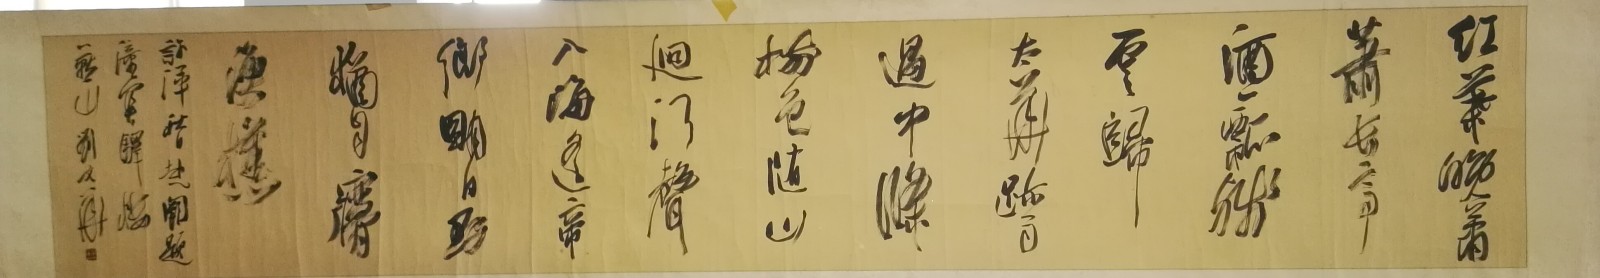 红葉晚蕭
蕭長亭
酒一瓢殘
雲歸
太華疏雨
過中條
樹色随山
迴河聲
入海遥帝
鄉明日到
猶自夢
漁樵
許渾秋赴闕題
潼關驛樓
燕山劉